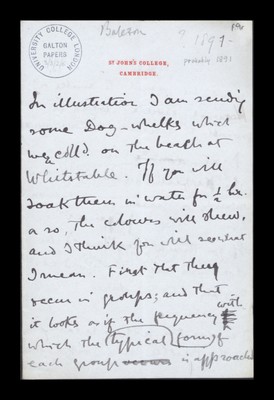 Bateson
? 1897-
probably 1891
UNIVERSITY COLLEGE LONDON
GALTON
PAPERS
ST JOHN'S COLLEGE,
CAMBRIDGE.
In illustration I am sending
some Dog-whelks which
we colld. on the beach at
Whitstable. If you will
soak them in water for ½ hr.
or so, the colours will shew,
and I think you will see what
I mean. First that they
occur in groups; and that
it looks as if the frequency with
which the typical form of
each group occurs is approached